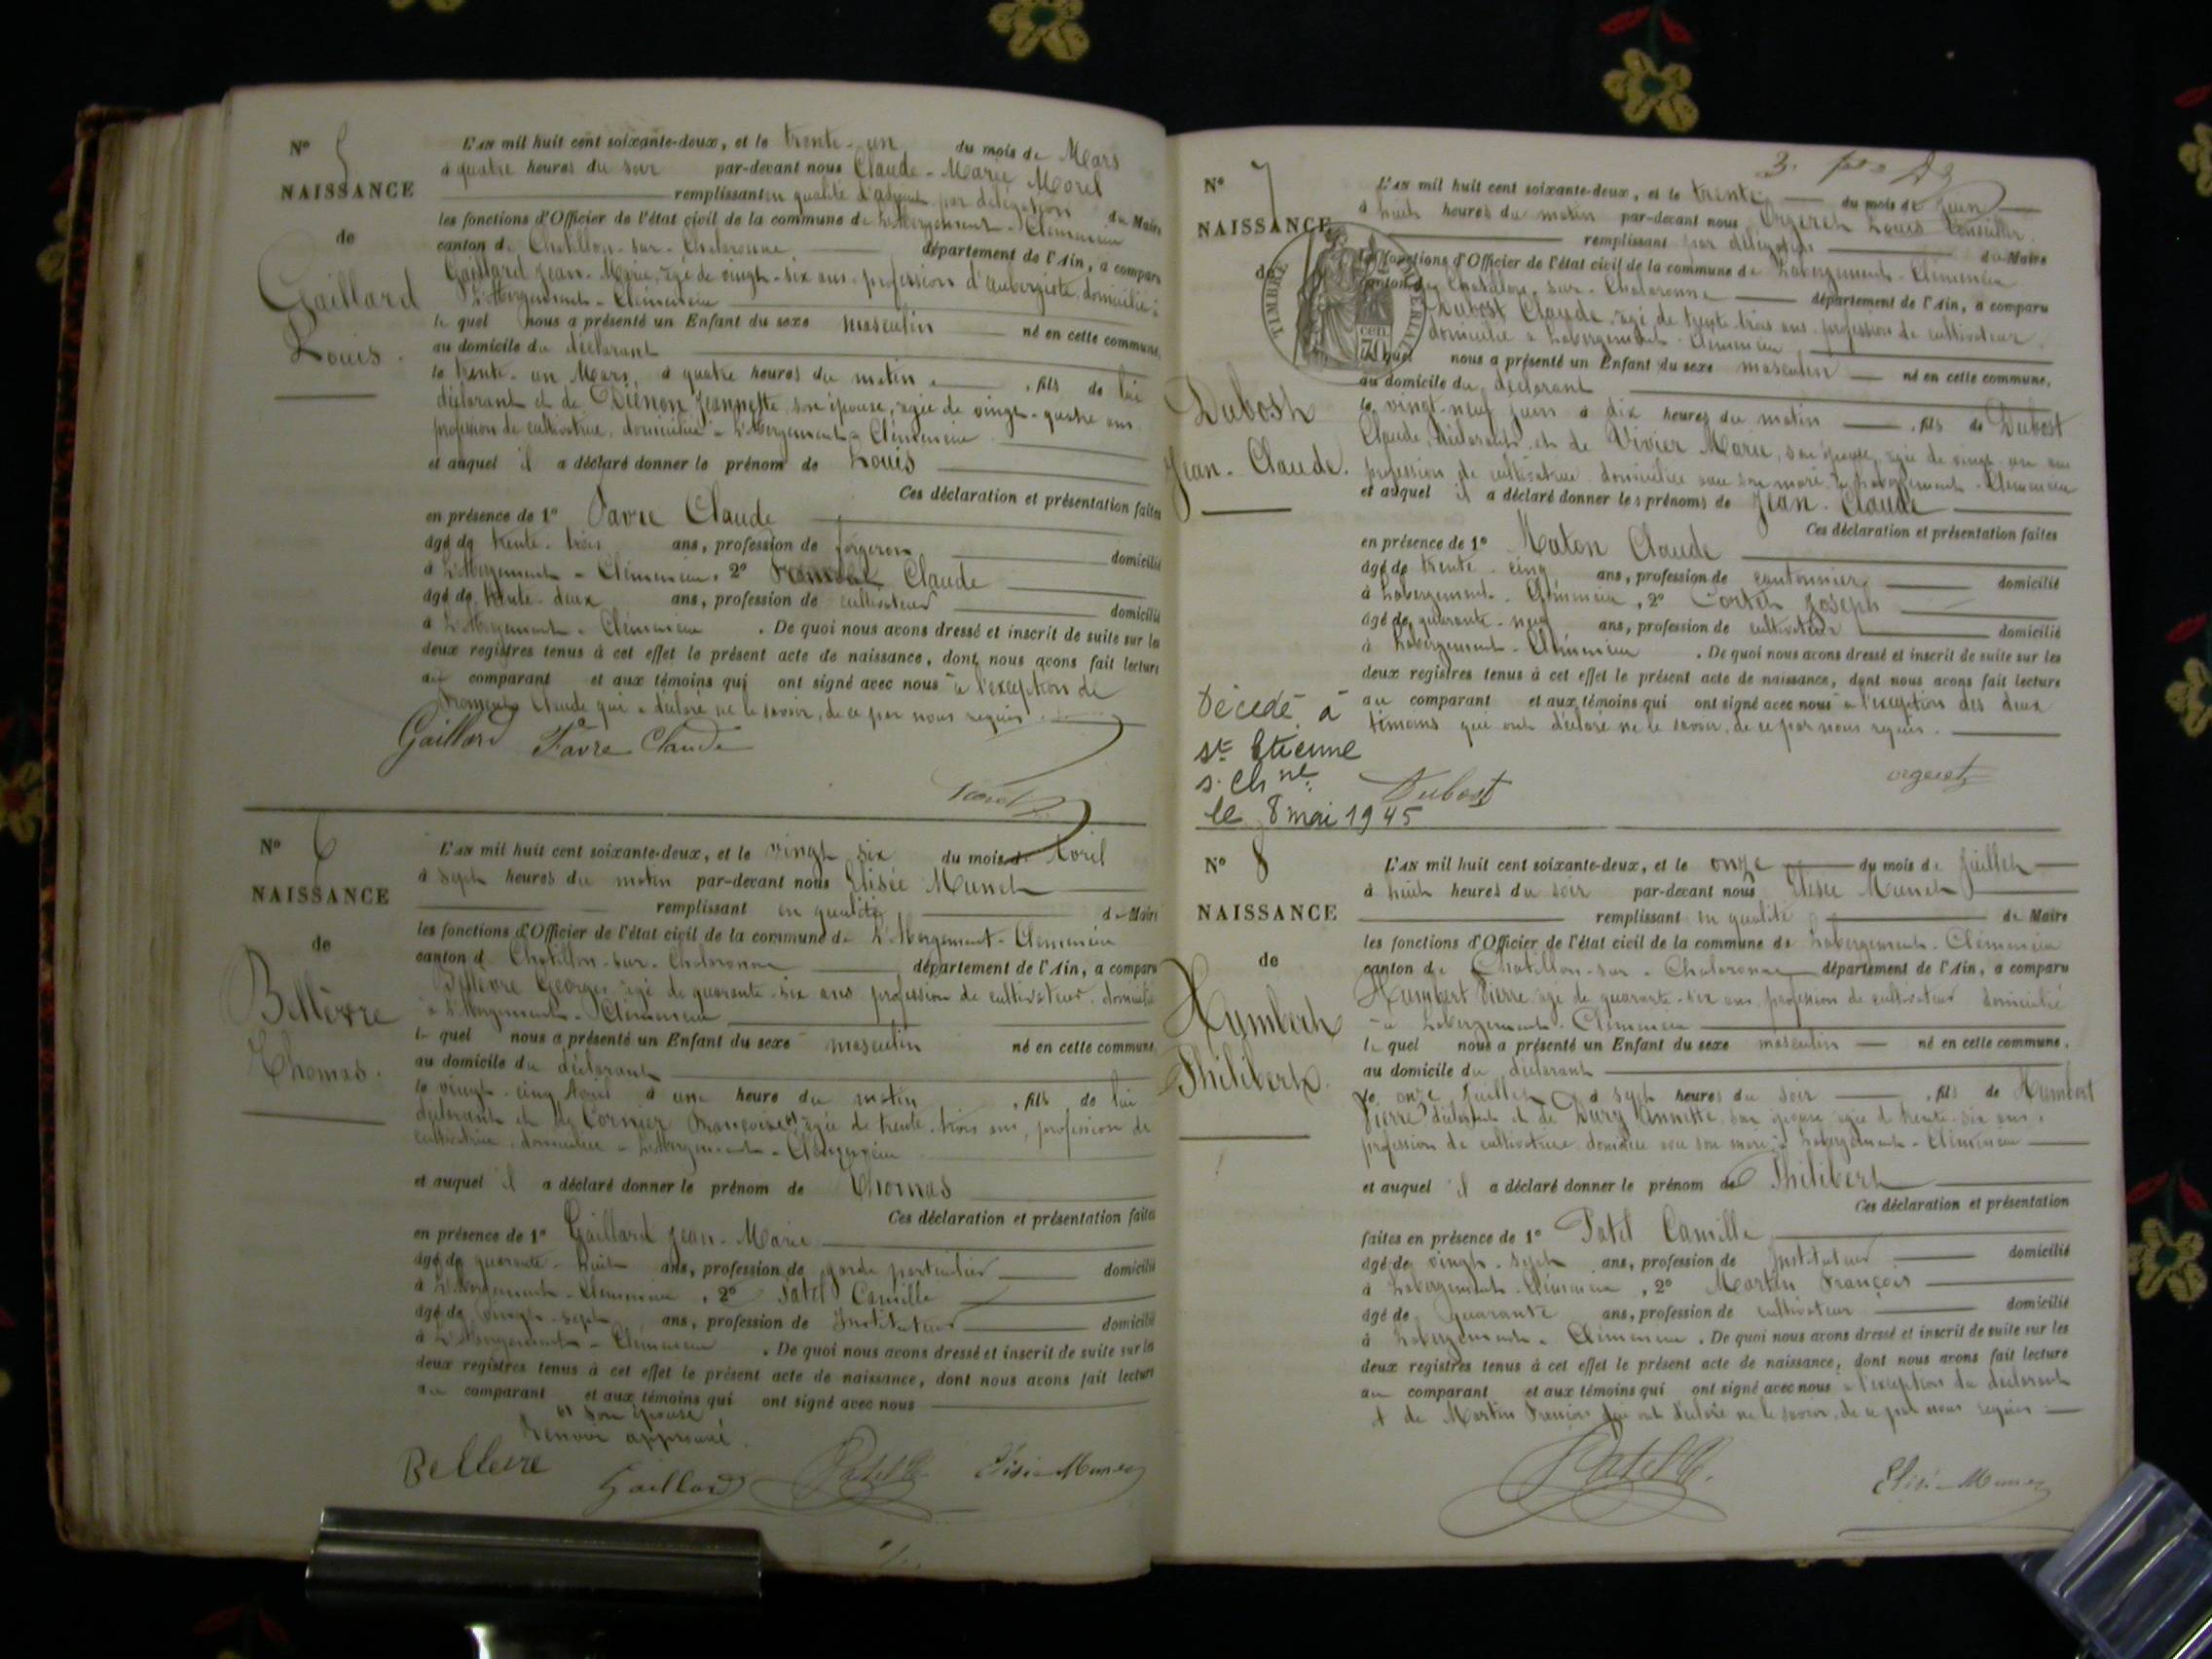 N° 5
NAISSANCE
de
Gaillard
Louis.
L'AN mil huit cent soixante-deux, et le trente-un du mois de Mars
à quatre heures du soir par-devant nous Claude-Marie Morel
remplissant en qualité d'adjoint par délégation du Maire
les fonctions d'Officier de l'état civil de la commune de L'Abergement-Clémencia
canton de Chatillon-sur-Chalaronne département de l'Ain, a comparu
Gaillard Jean-Marie, âgé de vingt-six ans, profession d'aubergiste, domicilié à
L'Abergement-Clémencia
le quel nous a présenté un Enfant du sexe masculin né en cette commune,
au domicile du déclarant
le trente-un Mars, à quatre heures du matin, fils de lui
déclarant et de Jeannette, son épouse, âgée de vingt-quatre ans
profession de cultivatrice, domiciliée à L'Abergement-Clémencia
et auquel il a déclaré donner le prénom de Louis
Ces déclaration et présentation faites
en présence de 1° Favre Claude
âgé de trente-trois ans, profession de forgeron domicilié
à L'Abergement-Clémencia, 2° Claude
âgé de trente-deux ans, profession de cultivateur domicilié
à L'Abergement-Clémencia. De quoi nous avons dressé et inscrit de suite sur les
deux registres tenus à cet effet le présent acte de naissance, dont nous avons fait lecture
au comparant et aux témoins qui ont signé avec nous à l'exception de
Froment Claude qui a déclaré ne le savoir, de ce par nous requis.
Gaillard Favre Claude
Morel
N° 6
NAISSANCE
de
Bellèvre
Thomas.
L'AN mil huit cent soixante-deux, et le vingt six du mois d'Avril
à sept heures du matin par-devant nous Elisée Munet
remplissant en qualité de Maire
les fonctions d'Officier de l'état civil de la commune de L'Abergement-Clémencia
canton de Chatillon-sur-Chalaronne département de l'Ain, a comparu
Bellevre Georges âgé de quarante-six ans profession de cultivateur, domicilié
à L'Abergement-Clémencia
le quel nous a présenté un Enfant du sexe masculin né en cette commune,
au domicile du déclarant
le vingt-cinq Avril à une heure du matin, fils de lui
déclarant et de Cornier Françoise âgée de trente-trois ans, profession de
cultivatrice, domiciliée à L'Abergement-Clémencia
et auquel il a déclaré donner le prénom de Thomas
Ces déclaration et présentation faites
en présence de 1° Gaillard Jean-Marie
âgé de quarante-huit ans, profession de garde particulier domicilié
à L'Abergement-Clémencia, 2° Patel Camille
âgé de vingt-sept ans, profession de Instituteur domicilié
à L'Abergement-Clémencia. De quoi nous avons dressé et inscrit de suite sur les
deux registres tenus à cet effet le présent acte de naissance, dont nous avons fait lecture
au comparant et aux témoins qui ont signé avec nous
son épouse
Renvoi approuvé.
Bellevre Gaillard Patel C. Elisée Munet
N° 7
NAISSANCE
de
TIMBRE IMPÉRIAL
70 cen.
Dubost
Jean-Claude.
L'AN mil huit cent soixante-deux, et le trente du mois de Juin
à huit heures du matin par-devant nous Orgeret Louis Conseiller
remplissant par délégation du Maire
les fonctions d'Officier de l'état civil de la commune de Labergement-Clémencia
canton de Chatillon-sur-Chalaronne département de l'Ain, a comparu
Dubost Claude, âgé de trente-trois ans, profession de cultivateur,
domicilié à Labergement-Clémencia
le quel nous a présenté un Enfant du sexe masculin né en cette commune,
au domicile du déclarant
le vingt-neuf juin à dix heures du matin, fils de Dubost
Claude, déclarant, et de Vivier Marie, son épouse, âgée de vingt-un ans
profession de cultivatrice domiciliée avec son mari à Labergement-Clémencia
et auquel il a déclaré donner les prénoms de Jean-Claude
Ces déclaration et présentation faites
en présence de 1° Maton Claude
âgé de trente-cinq ans, profession de cantonnier domicilié
à Labergement-Clémencia, 2° Joseph
âgé de quarante-neuf ans, profession de cultivateur domicilié
à Labergement-Clémencia. De quoi nous avons dressé et inscrit de suite sur les
deux registres tenus à cet effet le présent acte de naissance, dont nous avons fait lecture
au comparant et aux témoins qui ont signé avec nous à l'exception des deux
témoins qui ont déclaré ne le savoir, de ce par nous requis.
Dubost orgeret
Décédé à
St Etienne
s. Chne
le 8 mai 1945
N° 8
NAISSANCE
de
Humbert
Philibert.
L'AN mil huit cent soixante-deux, et le onze du mois de Juillet
à huit heures du soir par-devant nous Elisée Munet
remplissant en qualité de Maire
les fonctions d'Officier de l'état civil de la commune de Labergement-Clémencia
canton de Chatillon-sur-Chalaronne département de l'Ain, a comparu
Humbert Pierre âgé de quarante-six ans, profession de cultivateur domicilié
à Labergement-Clémencia
le quel nous a présenté un Enfant du sexe masculin né en cette commune,
au domicile du déclarant
le onze Juillet à sept heures du soir, fils de Humbert
Pierre déclarant et de Annette, son épouse âgée de trente-six ans,
profession de cultivatrice domiciliée avec son mari à Labergement-Clémencia
et auquel il a déclaré donner le prénom de Philibert
Ces déclaration et présentation
faites en présence de 1° Patel Camille
âgé de vingt-sept ans, profession de Instituteur domicilié
à Labergement-Clémencia, 2° Martin François
âgé de quarante ans, profession de cultivateur domicilié
à Labergement-Clémencia. De quoi nous avons dressé et inscrit de suite sur les
deux registres tenus à cet effet le présent acte de naissance, dont nous avons fait lecture
au comparant et aux témoins qui ont signé avec nous à l'exception du déclarant
et de Martin François qui ont déclaré ne le savoir, de ce par nous requis.
Patel C. Elisée Munet